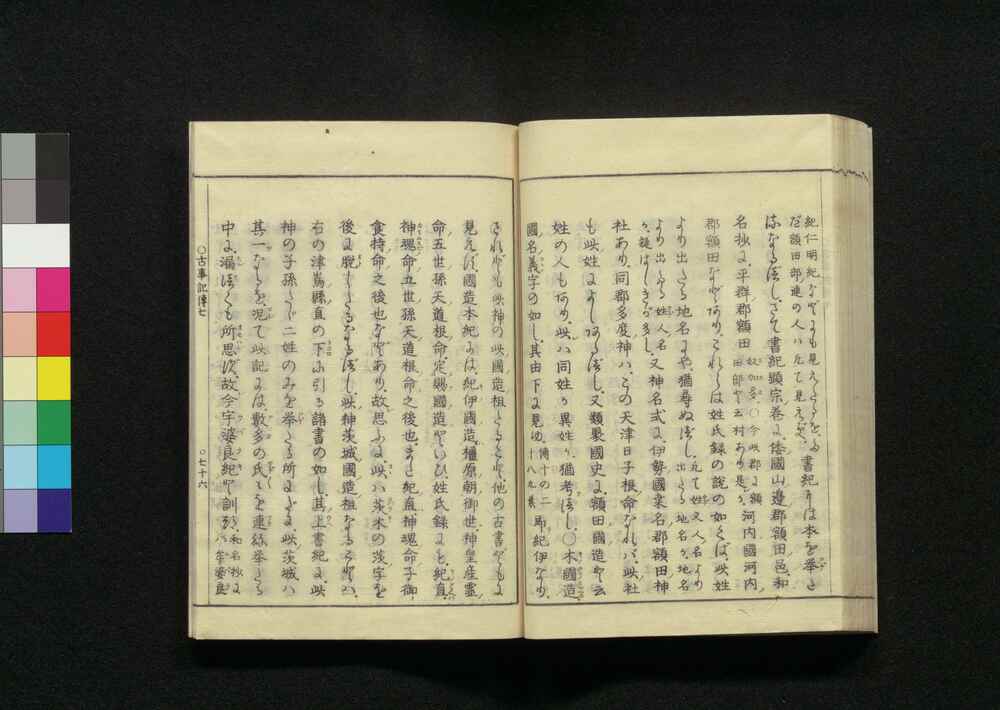 紀仁明紀などにも見えたるを、書紀には本を舉ざ
だ額田部連の人はたて見えず、
佐なるべし、さて書紀顯宗卷に、倭國山邊郡額田邑、和
名抄に、平群郡額田 奴加多 〇今此郡に額田部と云村あり是か、河内國河内
郡額田などあり、これらは姓氏錄の説の如くば、此姓
より出たる地名にや、猶尋ぬべし、凡て姓又人名より出たる地名か、地名
より出たる姓人名か、疑はしきが多し、又神名式に、伊勢國桑名郡額田神
社あり、同郡多度神は、この天津日子根命なれば、此社
も此姓によしあるべし、又類聚國史に、額田國造と云
姓の人もあり、此は同姓か異姓か、猶考べし、〇木國造
國名義字の如し、其由下に見ゆ、傳十の二十八九葉 即紀伊なり、
されども此神の此國造祖とること、他の古書どもに
見えず、國造本紀には、紀伊國造、橿原朝御世、神皇産靈
命五世孫天道根命、定賜國造といひ、姓氏錄にも、紀直、
神魂命五世孫天道根命之後也、また紀直神魂命子御
食持命之後也などあり、故思ふに、此は茨木の茨字を
後に脱しゝなるべし、此神茨城國造祖なることは、
右の津嶌縣直の下に引る諸書の如し、其上書紀に、此
神の子孫とて二姓のみを舉たる所にだに、此茨城は
其一なるを、况て此記には數多の氏々を連ね舉たる
中に、漏べくも所思ず、故今宇婆良紀と訓つ、和名抄に は牟婆良
〇古事記傳七
〇七十六